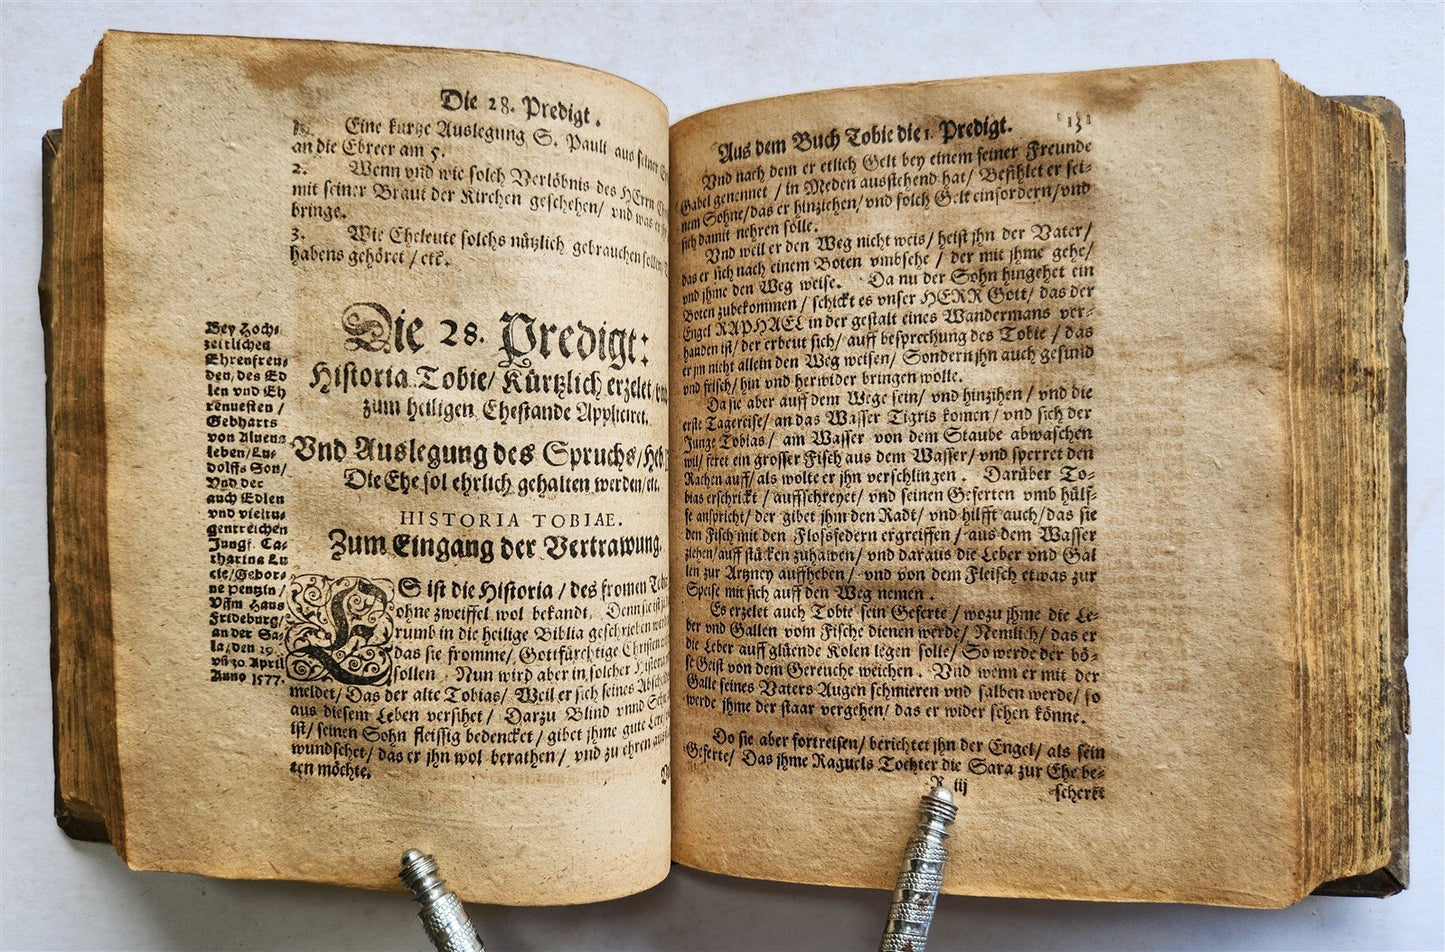 Die 28. Predigt.
Eine kurtze Auslegung S. Pauli aus seiner
an die Ebreer am 5.
2. Wenn vnd wie solch Verlöbnis des HErrn
mit seiner Braut der Kirchen geschehen/ vnd was
bringe.
3. Wie Eheleute solchs nützlich gebrauchen sollen/
habens gehöret/ etc.
Die 28. Predigt:
Historia Tobie/ Kürtzlich erzelet/
zum heiligen Ehestande Appliciret.
Vnd Auslegung des Spruchs/ Heb
Die Ehe sol ehrlich gehalten werden/ etc.
HISTORIA TOBIAE.
Zum Eingang der Vertrawung.
ES ist die Historia/ des fromen
ohne zweiffel wol bekandt. Denn sie ist
rumb in die heilige Biblia geschrieben
das sie fromme/ Gottfürchtige Christen
sollen. Nun wird aber in solcher Historia
meldet/ Das der alte Tobias/ Weil er sich seines
aus diesem Leben versihet/ Darzu Blind vnnd
ist/ seinen Sohn fleissig bedencket/ gibet jhme gute
wundschet/ das er jhn wol berathen/ vnd zu ehren
ten möchte.
Bey Hoch-
zeitlichen
Ehrenfreu-
den, des Ed
len vnd Eh
renuesten/
Gebharts
von Aluens
leben/ Lu-
dolffs Son/
Vnd der
auch Edlen
vnd vieltu-
gentreichen
Jungf. Ca-
tharina Lu
cie/ Gebor-
ne pentzin/
Vffm Haus
Frideburg/
an der Sa-
la, den 29.
vñ 30 April
Anno 1577.
Aus dem Buch Tobie die 1. Predigt. 131
Vnd nach dem er etlich Gelt bey einem seiner Freunde
Gabel genennet/ in Meden ausstehend hat/ Befihlet er sei-
nem Sohne/ das er hinziehen/ vnd solch Gelt einfordern/ vnd
sich damit nehren solle.
Vnd weil er den Weg nicht weis/ heist jhn der Vater/
das er sich nach einem Boten vmbsehe/ der mit jhme gehe/
vnd jhme den Weg weise. Da nu der Sohn hingehet ein
Boten zubekommen/ schickt es vnser HERR Gott/ das der
Engel RAPHAEL in der gestalt eines Wandermans ver-
handen ist/ der erbeut sich/ auff besprechung des Tobie/ das
er jm nicht allein den Weg weisen/ Sondern jhn auch gesund
vnd frisch/ hin vnd herwider bringen wolle.
Da sie aber auff dem Wege sein/ vnd hinzihen/ vnd die
erste Tagereise/ an das Wasser Tigris komen/ vnd sich der
Junge Tobias/ am Wasser von dem Staube abwaschen
wil/ feret ein grosser Fisch aus dem Wasser/ vnd sperret den
Rachen auff/ als wolte er jhn verschlingen. Darüber To-
bias erschrickt/ auffschreyet/ vnd seinen Geferten vmb hülf-
fe anspricht/ der gibet jhm den Radt/ vnd hilfft auch/ das sie
den Fisch mit den Flosfedern ergreiffen/ aus dem Wasser
ziehen/ auff stücken zuhawen/ vnd daraus die Leber vnd Gal
len zur Artzney auffheben/ vnd von dem Fleisch etwas zur
Speise mit sich auff den Weg nemen.
Es erzelet auch Tobie sein Geferte/ wozu jhme die Le-
ber vnd Gallen vom Fische dienen werde/ Nemlich/ das er
die Leber auff glüende Kolen legen solle/ So werde der bö-
se Geist von dem Gereuche weichen. Vnd wenn er mit der
Galle seines Vaters Augen schmieren vnd salben werde/ so
werde jhme der staar vergehen/ das er wider sehen könne.
Do sie aber fortreisen/ berichtet jhn der Engel/ als sein
Geferte/ Das jhme Raguels Tochter die Sara zur Ehe be-
R iij
scheret